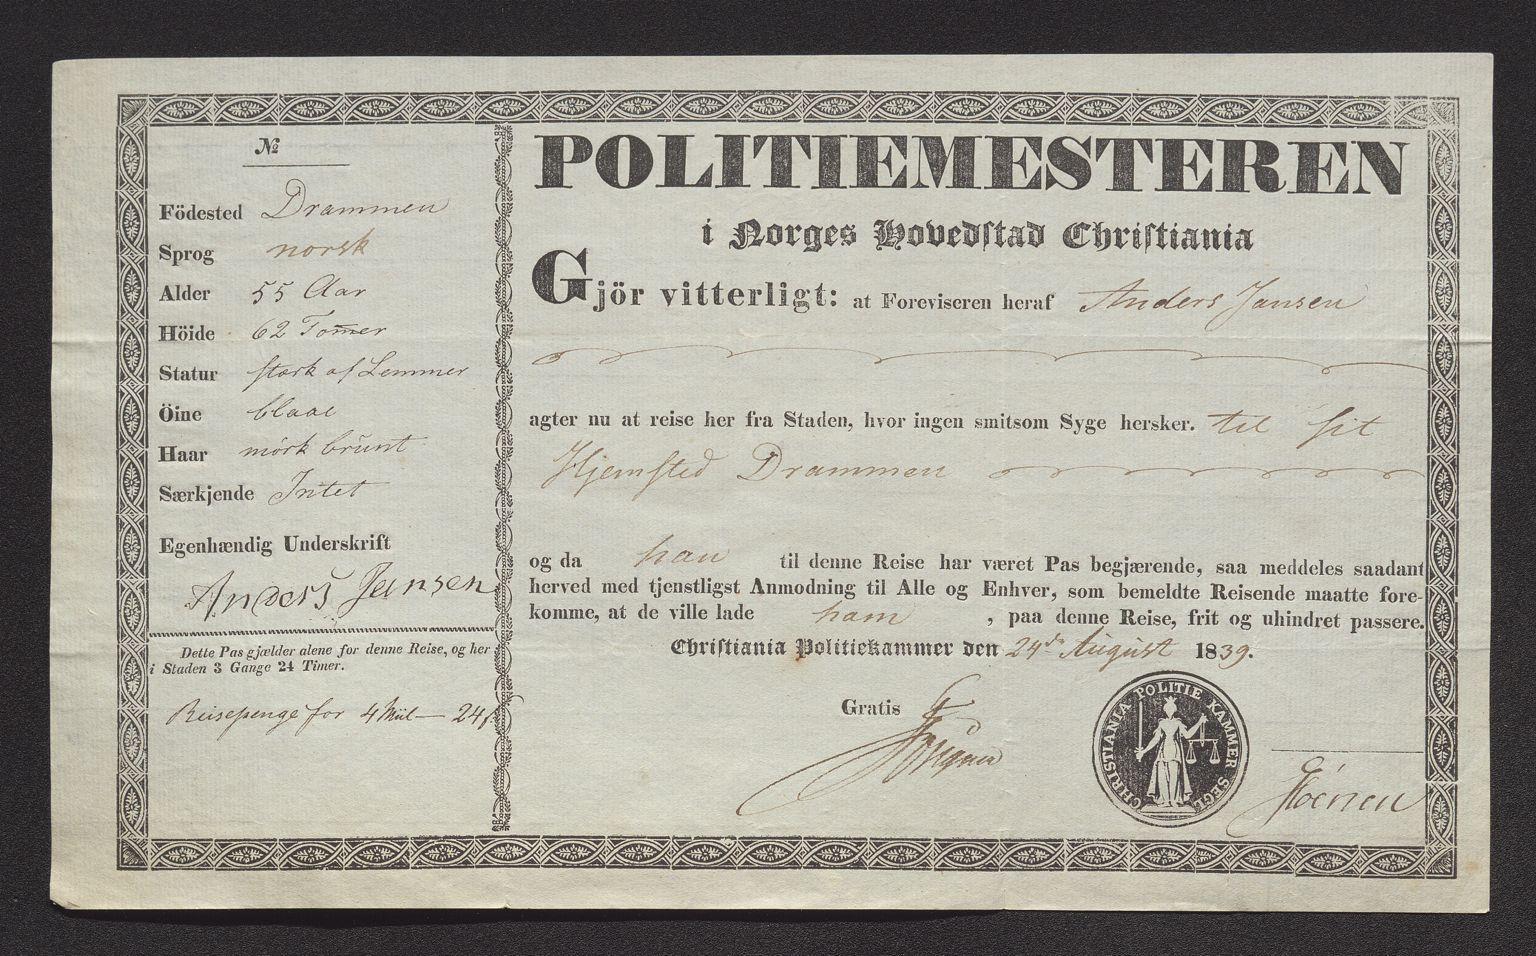 №
Födested Drammen
Sprog norsk
Alder 55 Aar
Höide 62 Tom̅er
Statur stærk af Lemmer
Öine blaae
Haar mørk brunt
Særkjende Intet
Egenhændig Underskrift
Anders Jansen
Dette Pas gjælder alene for denne Reise, og her
i Staden 3 Gange 24 Timer.
Reisepenge for 4 Miil — 24
POLITIEMESTEREN
i Norges Hovedſtad Chriſtiania
Gjör vitterligt: at Foreviseren heraf Anders Jansen
agter nu at reise her fra Staden, hvor ingen smitsom Syge hersker. til sit
Hjemsted Drammen
og da han til denne Reise har været Pas begjærende, saa meddeles saadant
herved med tjenstligst Anmodning til Alle og Enhver, som bemeldte Reisende maatte fore-
komme, at de ville lade ham, paa denne Reise, frit og uhindret passere.
Chriſtiania Politiekammer den 24de August 1839.
Gratis
CHRISTIANIA POLITIE KAMMER SEGL